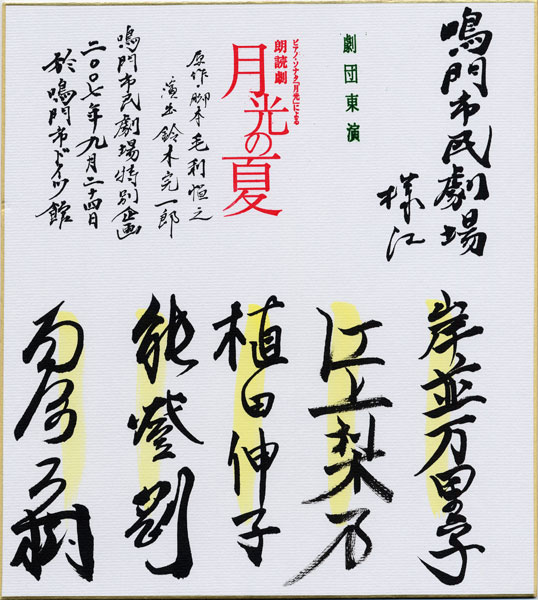 鳴門市民劇場
様江
劇団東演
ピアノ・ソナタ「月光」による
朗読劇
月光の夏
原作・脚本 毛利恒之
演出 鈴木完一郎
鳴門市民劇場特別企画
二〇〇七年九月二十四日
於 鳴門市ドイツ館
岸並万里子
江上梨乃
植田伸子
能登剛